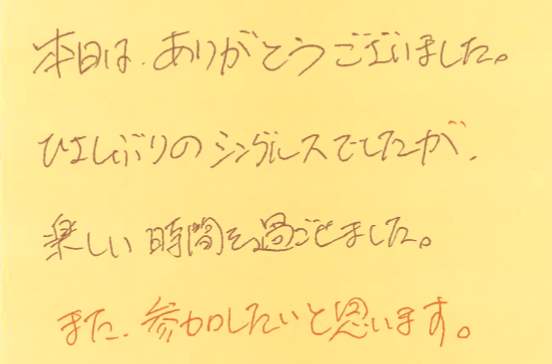 本日は、ありがとうございました。
ひさしぶりのシングルスでしたが、
楽しい時間を過ごせました。
また、参加したいと思います。